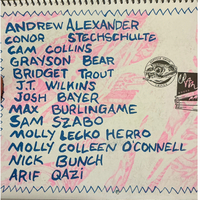 ANDREW ALEXANDER
CONOR STECHSCHULTE
CAM COLLINS
GRAYSON BEAR
BRIDGET TROUT
J.T. WILKINS
JOSH BAYER
MAX BURLINGAME
SAM SZABO
MOLLY LECKO HERRO
MOLLY COLLEEN O'CONNELL
NICK BUNCH
ARIF QAZI